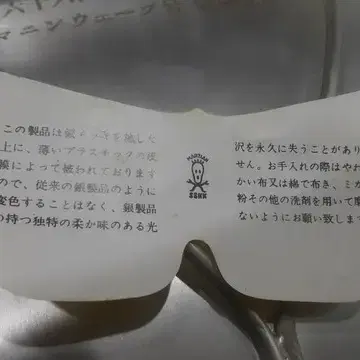 マニンウェーブ
この製品は銀めっきを施した
上に、薄いプラスチックの皮
膜によって被われております
ので、従来の銀製品のように
変色することはなく、銀製品
の持つ独特の柔か味のある光
沢を永久に失うことがあり
せん。お手入れの際はやわ
かい布又は綿で布き、ミガ
粉その他の洗剤を用いて磨
ないようにお願い致しま